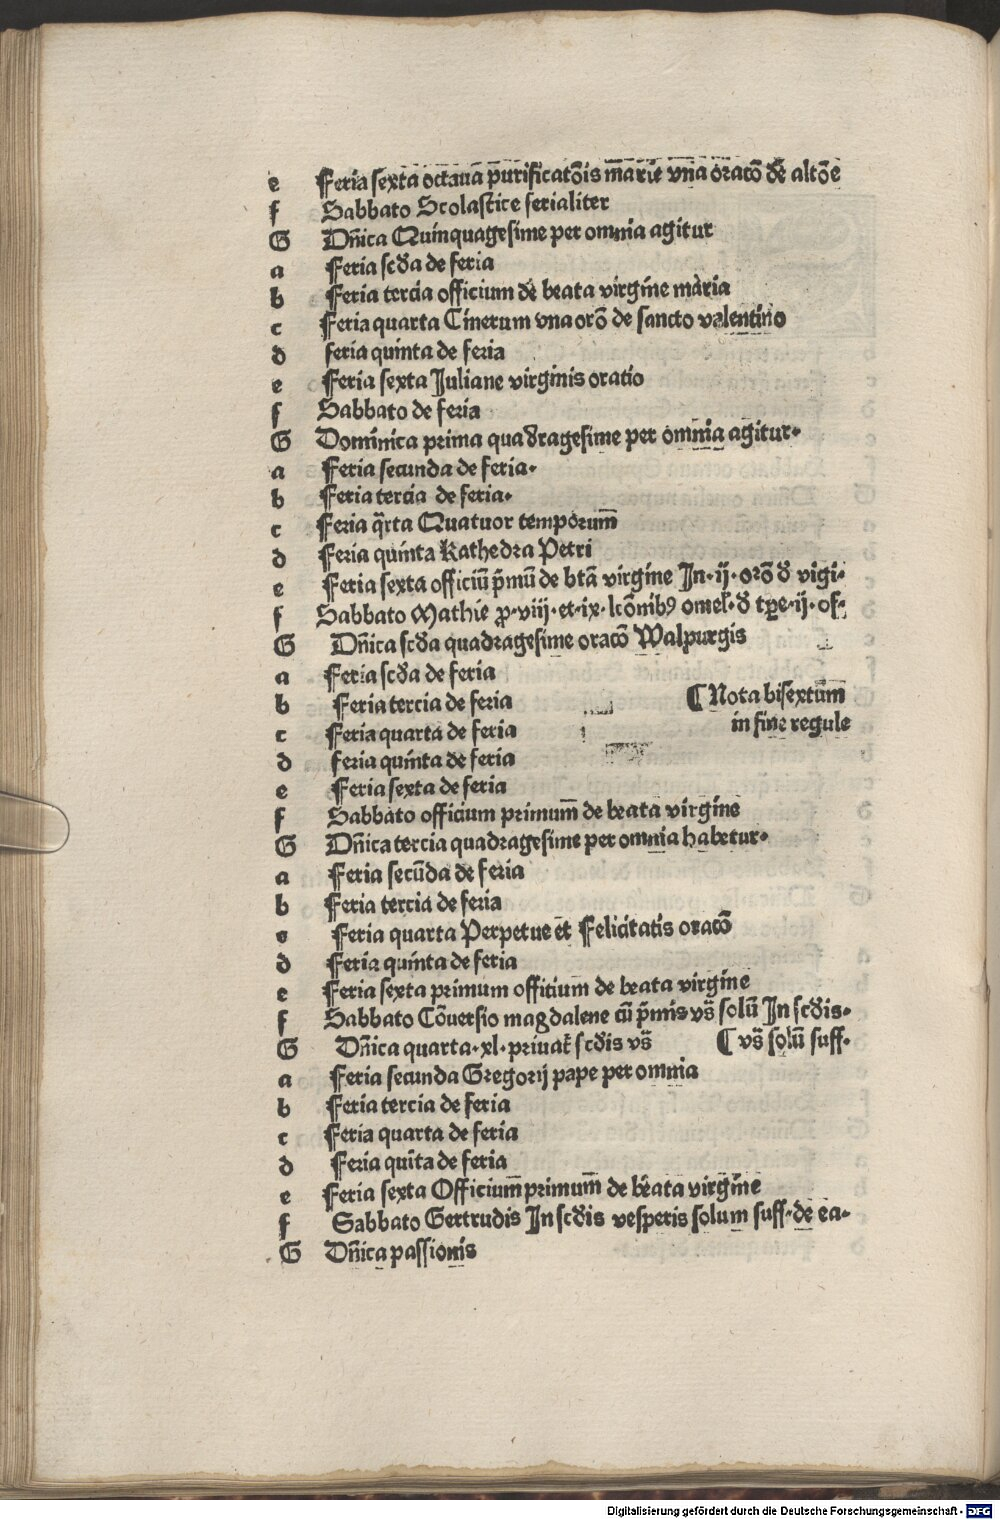 e Feria sexta octauā purificatōis marie vna oracō de altōe
f Sabbato Scolastice ferialiter
G Dñica Quinquagesime per omnia agitur
a Feria scđa de feria
b Feria tercia officium de beata virgine maria
c Feria quarta Cinerum vna orō de sancto valentino
d feria quinta de feria
e Feria sexta Juliane virginis oratio
f Sabbato de feria
G Dominica prima quadragesime per omnia agitur·
a Feria secunda de feria·
b Feria tercia de feria·
c Feria q̄rta Quatuor temporum̄
d Feria quinta Kathedra Petri
e Feria sexta officiū p̄mū de btā virgine In·ij·orō đ vigi·
f Sabbato Mathie ꝓ·viij·et·ix·lcōnibꝰ omel·đ tꝑe·ij·of·
G Dñica scđa quadragesime oracō Walpurgis
a Feria scđa de feria
b Feria tercia de feria ¶ Nota bisextum
c Feria quarta de feria in fine regule
d feria quinta de feria
e Feria sexta de feria
f Sabbato officium primum̄ de beata virgine
G Dñica tercia quadragesime per omnia habetur·
a Feria secūda de feria
b Feria tercia de feria
c Feria quarta Perpetue et Felicitatis oracō
d Feria quinta de feria
e Feria sexta primum offitium de beata virgine
f Sabbato Cōuersio magdalene cū p̄mis vs̄ solū In scđis·
G Dñica quarta·xl·priuat̄ scđis vs̄ ¶ vs̄ solū suff·
a Feria secunda Gregorij pape per omnia
b Feria tercia de feria
c Feria quarta de feria
d Feria quīta de feria
e Feria sexta Officium̄ primum̄ de beata virgine
f Sabbato Gertrudis In scđis vesperis solum suff·de ea·
G Dñica passionis
Digitalisierung gefördert durch die Deutsche Forschungsgemeinschaft - DFG